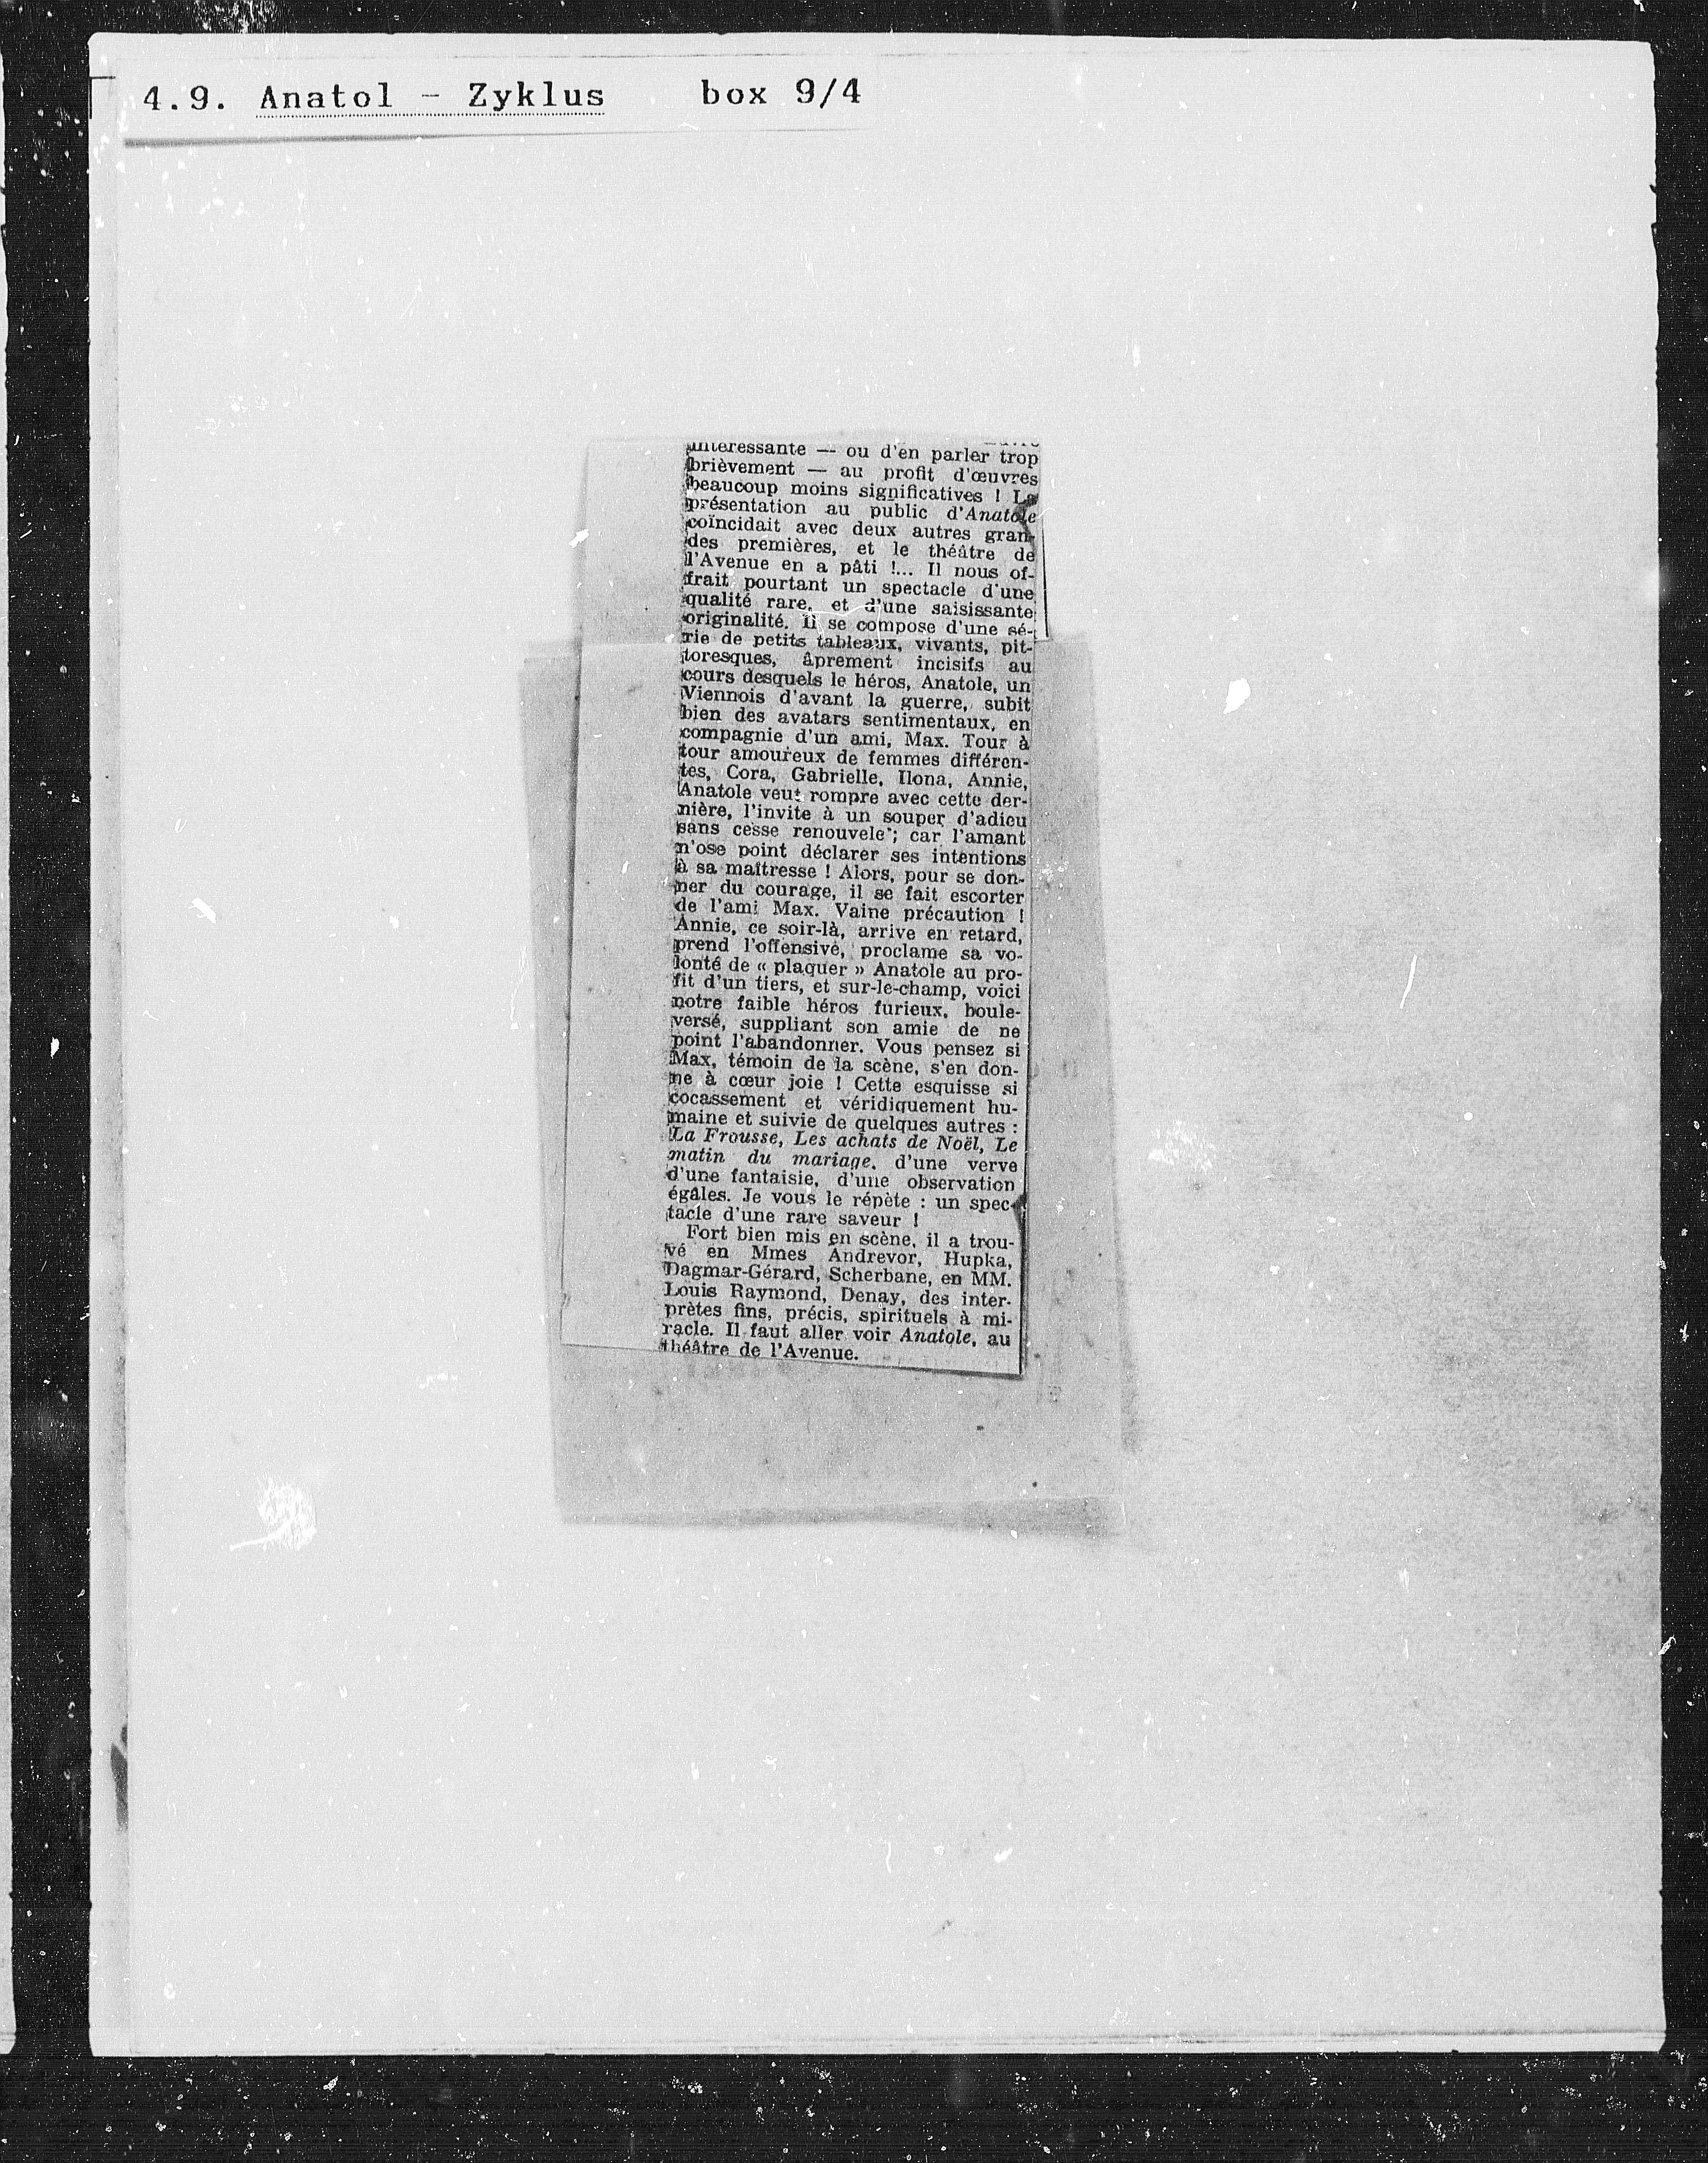 4.9. Anatol - Zyklus box 9/4
intéressante — ou d'en parler trop
brièvement — au profit d'œuvres
beaucoup moins significatives ! La
présentation au public d'Anatole
coïncidait avec deux autres gran-
des premières, et le théâtre de
l'Avenue en a pâti !... Il nous of-
frait pourtant un spectacle d'une
qualité rare, et d'une saisissante
originalité. Il se compose d'une sé-
rie de petits tableaux, vivants, pit-
toresques, âprement incisifs au
cours desquels le héros, Anatole, un
Viennois d'avant la guerre, subit
bien des avatars sentimentaux, en
compagnie d'un ami, Max. Tour à
tour amoureux de femmes différen-
tes, Cora, Gabrielle, Ilona, Annie,
Anatole veut rompre avec cette der-
nière, l'invite à un souper d'adieu
sans cesse renouvele'; car l'amant
n'ose point déclarer ses intentions
à sa maîtresse ! Alors, pour se don-
ner du courage, il se fait escorter
de l'ami Max. Vaine précaution !
Annie, ce soir-là, arrive en retard,
prend l'offensive, proclame sa vo-
lonté de « plaquer » Anatole au pro-
fit d'un tiers, et sur-le-champ, voici
notre faible héros furieux, boule-
versé, suppliant son amie de ne
point l'abandonner. Vous pensez si
Max, témoin de la scène, s'en don-
ne à cœur joie ! Cette esquisse si
cocassement et véridiquement hu-
maine et suivie de quelques autres :
La Frousse, Les achats de Noël, Le
matin du mariage, d'une verve
d'une fantaisie, d'une observation
égales. Je vous le répète : un spec-
tacle d'une rare saveur !
Fort bien mis en scène, il a trou-
vé en Mmes Andrevor, Hupka,
Dagmar-Gérard, Scherbane, en MM.
Louis Raymond, Denay, des inter-
prètes fins, précis, spirituels à mi-
racle. Il faut aller voir Anatole, au
théâtre de l'Avenue.